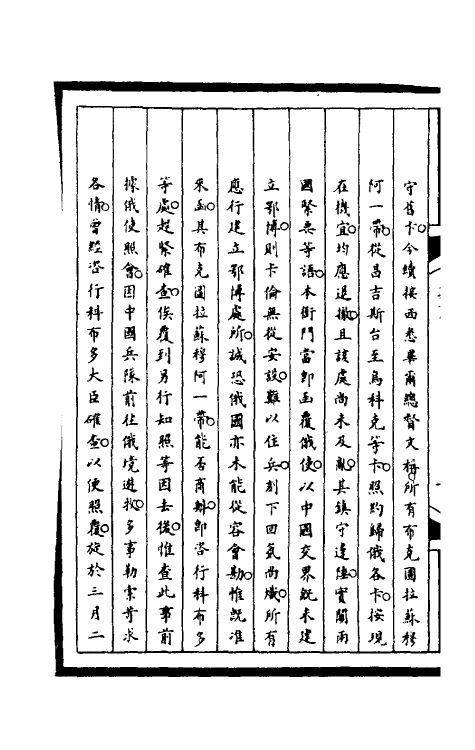 守舊卡今續接西悉畢爾總督文稱所有布克圖拉蘇穆
阿一帶從昌吉斯台至烏科克等卡照約歸俄各卡按現
在機宜均應退撤且該處尚未及亂其鎮守邊陲實關兩
國緊要等語本衙門當即函覆俄使以中國交界既未建
立鄂博則卡倫無從安設難以住兵刻下回氛尚熾所有
應行建立鄂博處所誠恐俄國亦未能從容會勘惟既准
來函其布克圖拉蘇穆阿一帶能否商辦即咨行科布多
等處趕緊確查俟覆到另行知照等因去後惟查此事前
據俄使照會因中國兵隊前往俄境遊牧多事勒索苛求
各情曾經咨行科布多大臣確查以便照覆旋於三月二